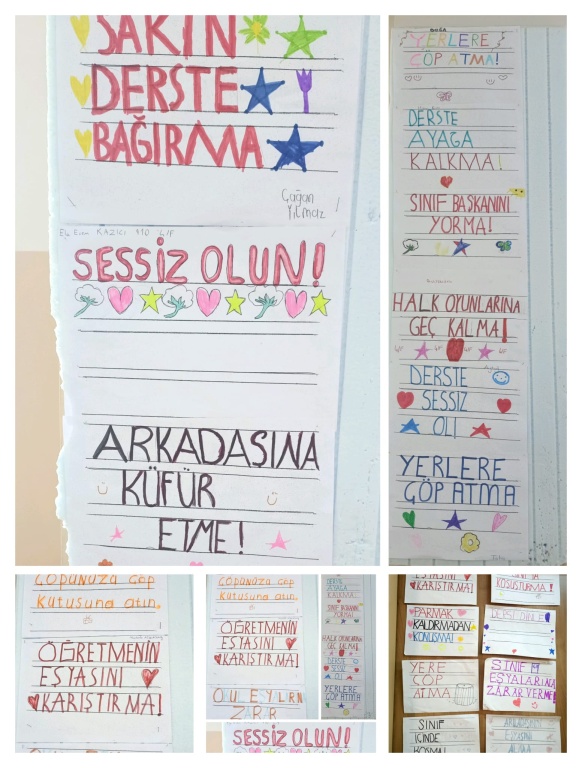 SAKIN
DERSTE
BAĞIRMA
Çağan
Yılmaz
KAZICI 110
SESSİZ OLUN!
ARKADAŞINA
KÜFÜR
ETME!
DOĞA
YERLERE
ÇÖP ATMA!
DERSTE
AYAĞA
KALKMA!
SINIF BAŞKANINI
YORMA!
HALK OYUNLARINA
GEÇ KALMA!
4F 4F 4F
DERSTE
SESSİZ
OL!
YERLERE
ÇÖP ATMA
ÇÖPÜNÜZÜ ÇÖP
Kutusuna atın.
ÖĞRETMENİN
EŞYASINI
KARIŞTIRMA!
ÇÖPÜNÜZÜ ÇÖP
Kutusuna atın.
ÖĞRETMENİN
EŞYASINI
KARIŞTIRMA!
ZARAR
SESSİZ OLUN!
DERSTE
AYAĞA
KALKMA!
SINIF BAŞKANINI
YORMA!
HALK OYUNLARINA
GEÇ KALMA!
DERSTE
SESSİZ
OL!
YERLERE
ÇÖP ATMA
EŞYASINI
KARIŞTIRMA!
KOŞUŞTURMA!
PARMAK
KALDIRMADAN
KONUŞMA!
DERSİ DİNLE
YERE
ÇÖP
ATMA
SINIF
EŞYALARINA
ZARAR VERME!
SINIF
İÇİNDE
KOŞMA!